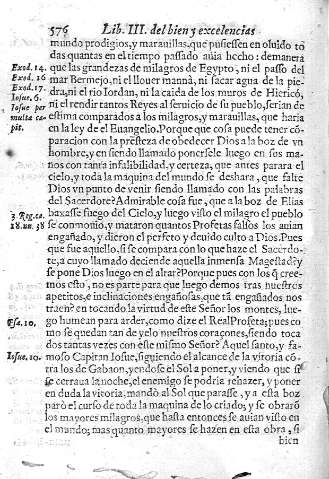 576 Lib. III. del bien y excelencias
mundo prodigios, y marauillas, que pusiessen en oluido to
das quantas en el tiempo passado auia hecho: demanera
Exod. 14. que las grandezas de milagros de Egypto, ni el passo del
Exod. 16 mar Bermejo, ni el llouer manná, ni sacar agua de la pie-
Exod. 17. dra, ni el rio Iordan, ni la caida de los muros de Hiericó,
Iosue. 6. ni el rendir tantos Reyes al seruicio de su pueblo, serian de
Iosue per estima comparados a los milagros, y marauillas, que haria
multa ca en la ley de el Euangelio. Porque que cosa puede tener có
pit. paracion con la presteza de obedecer Dios a la boz de vn
hombre, y en siendo llamado ponersele luego en sus ma
nos con tanta infalibilidad, y certeza, que antes parara el
cielo, y toda la maquina del mundo se deshara, que falte
Dios vn punto de venir siendo llamado con las palabras
del Sacerdote? Admirable cosa fue, que a la boz de Elias
3. Reg. ca. baxasse fuego del Cielo, y luego visto el milagro el pueblo
18. nu. 38 se conmouio, y mataron quantos Profetas falsos los auian
engañado, y dieron el perfeto y deuido culto a Dios. Pues
que fue aquello si se compara con lo que haze el Sacerdo-
te, a cuyo llamado deciende aquella inmensa Magestad? y
se pone Dios luego en el altar? Porque pues con los q̃ cree-
mos esto, no es parte para que luego demos tras nuestros
apetitos, e inclinaciones engañosas, que tã engañados nos
traẽn? en tocando la virtud de este Señor los montes, lue-
Psa. 10. go humean para arder, como dize el Real Profeta; pues co
mo se quedan tan de yelo nuestros coraçones, siendo toca
dos tantas vezes con este mismo Señor? Aquel santo, y fa-
Iosue. 10. moso Capitan Iosue, siguiendo el alcance de la vitoria có
tra los de Gabaon, yendose el Sol a poner, y viendo que si
se cerraua la noche, el enemigo se podria rehazer, y poner
en duda la vitoria, mandò al Sol que parasse, y a esta boz
parò el curso de toda la maquina de lo criado; y se obrarõ
los mayores milagros, que hasta entonces se auian visto en
el mundo; mas quanto mayores se hazen en esta obra, si
bien